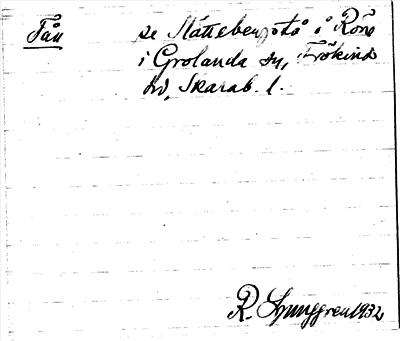 Tån se Slättebergstå i Röne
i Grolanda sn, Frökinds
hd, Skarab. l.
R. Ljunggren 1932